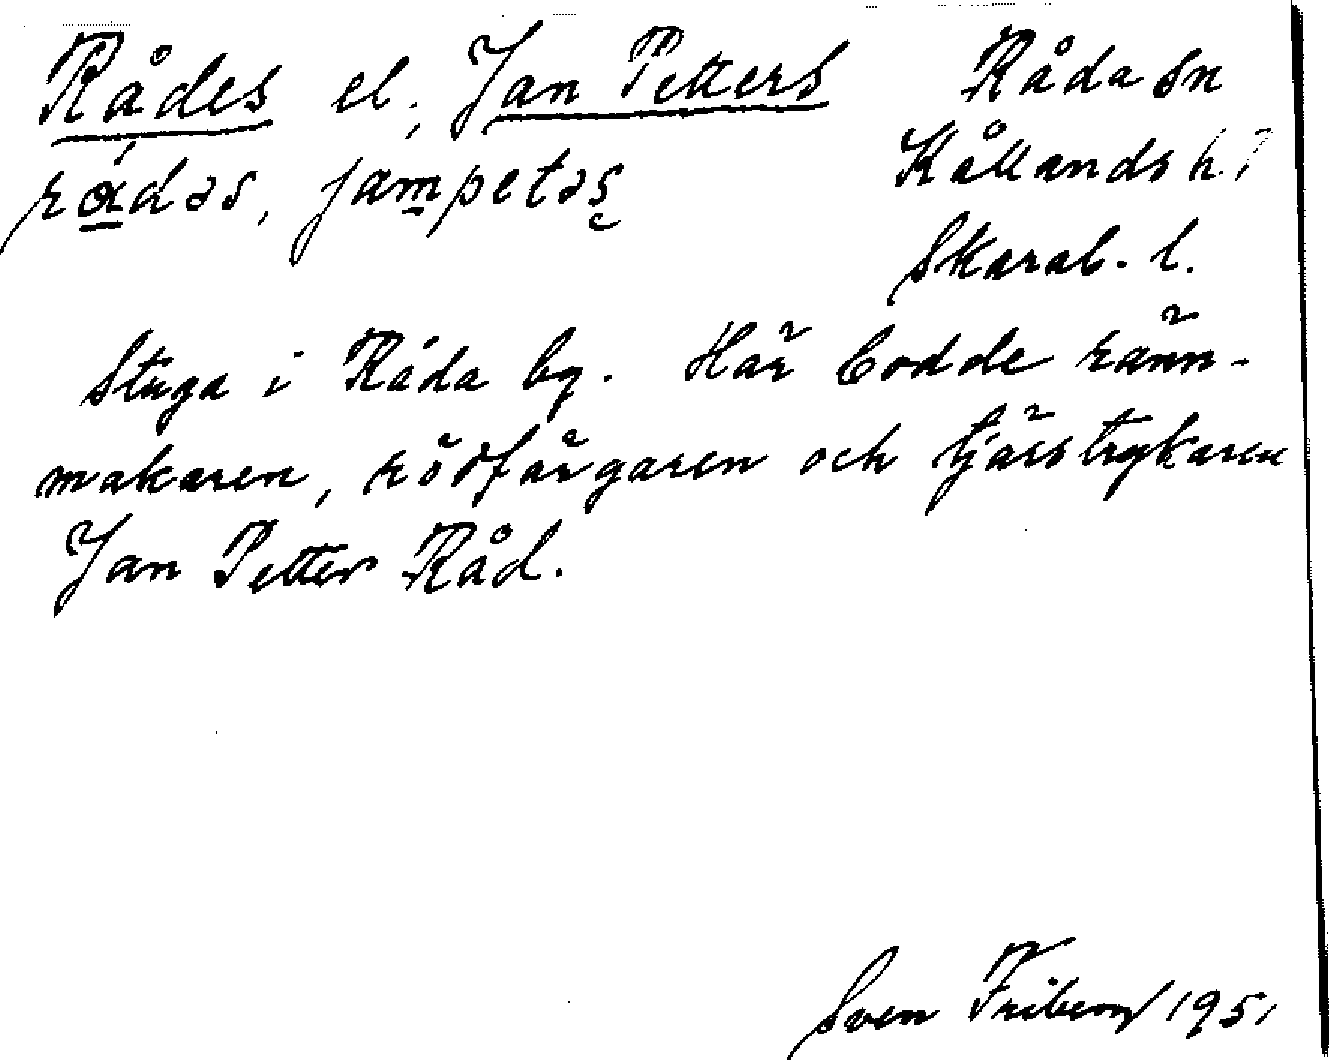 Rådes el. Jan Petters Råda sn
rådəs, jampetəs Kållands hd
Skarab. l.
Stuga i Råda by. Här bodde ränn-
makaren, rödfärgaren och tjärstrykaren
Jan Petter Råd.
Sven Friberg 1951